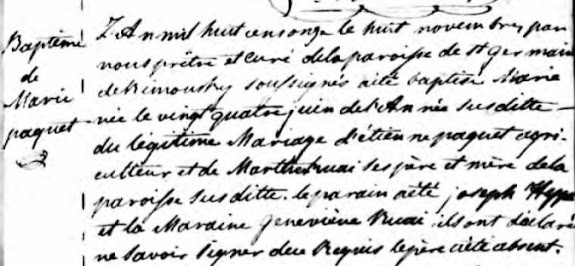 Baptême
de
Marie
paquet
L'An mil huit cens onze le huit novembre par
nous prêtre et curé de la paroisse de st germain
de Rimousky soussignés a été baptisé Marie
née le vingt quatre juin de l'Année susditte
du légitime Mariage d'étienne paquet agri-
culteur et de Marthe Ruai ses père et mère de la
paroisse susditte. le parain a été joseph
et la Maraine geneviève Ruai ils ont déclaré
ne savoir signer de ce Requis le père était absent.